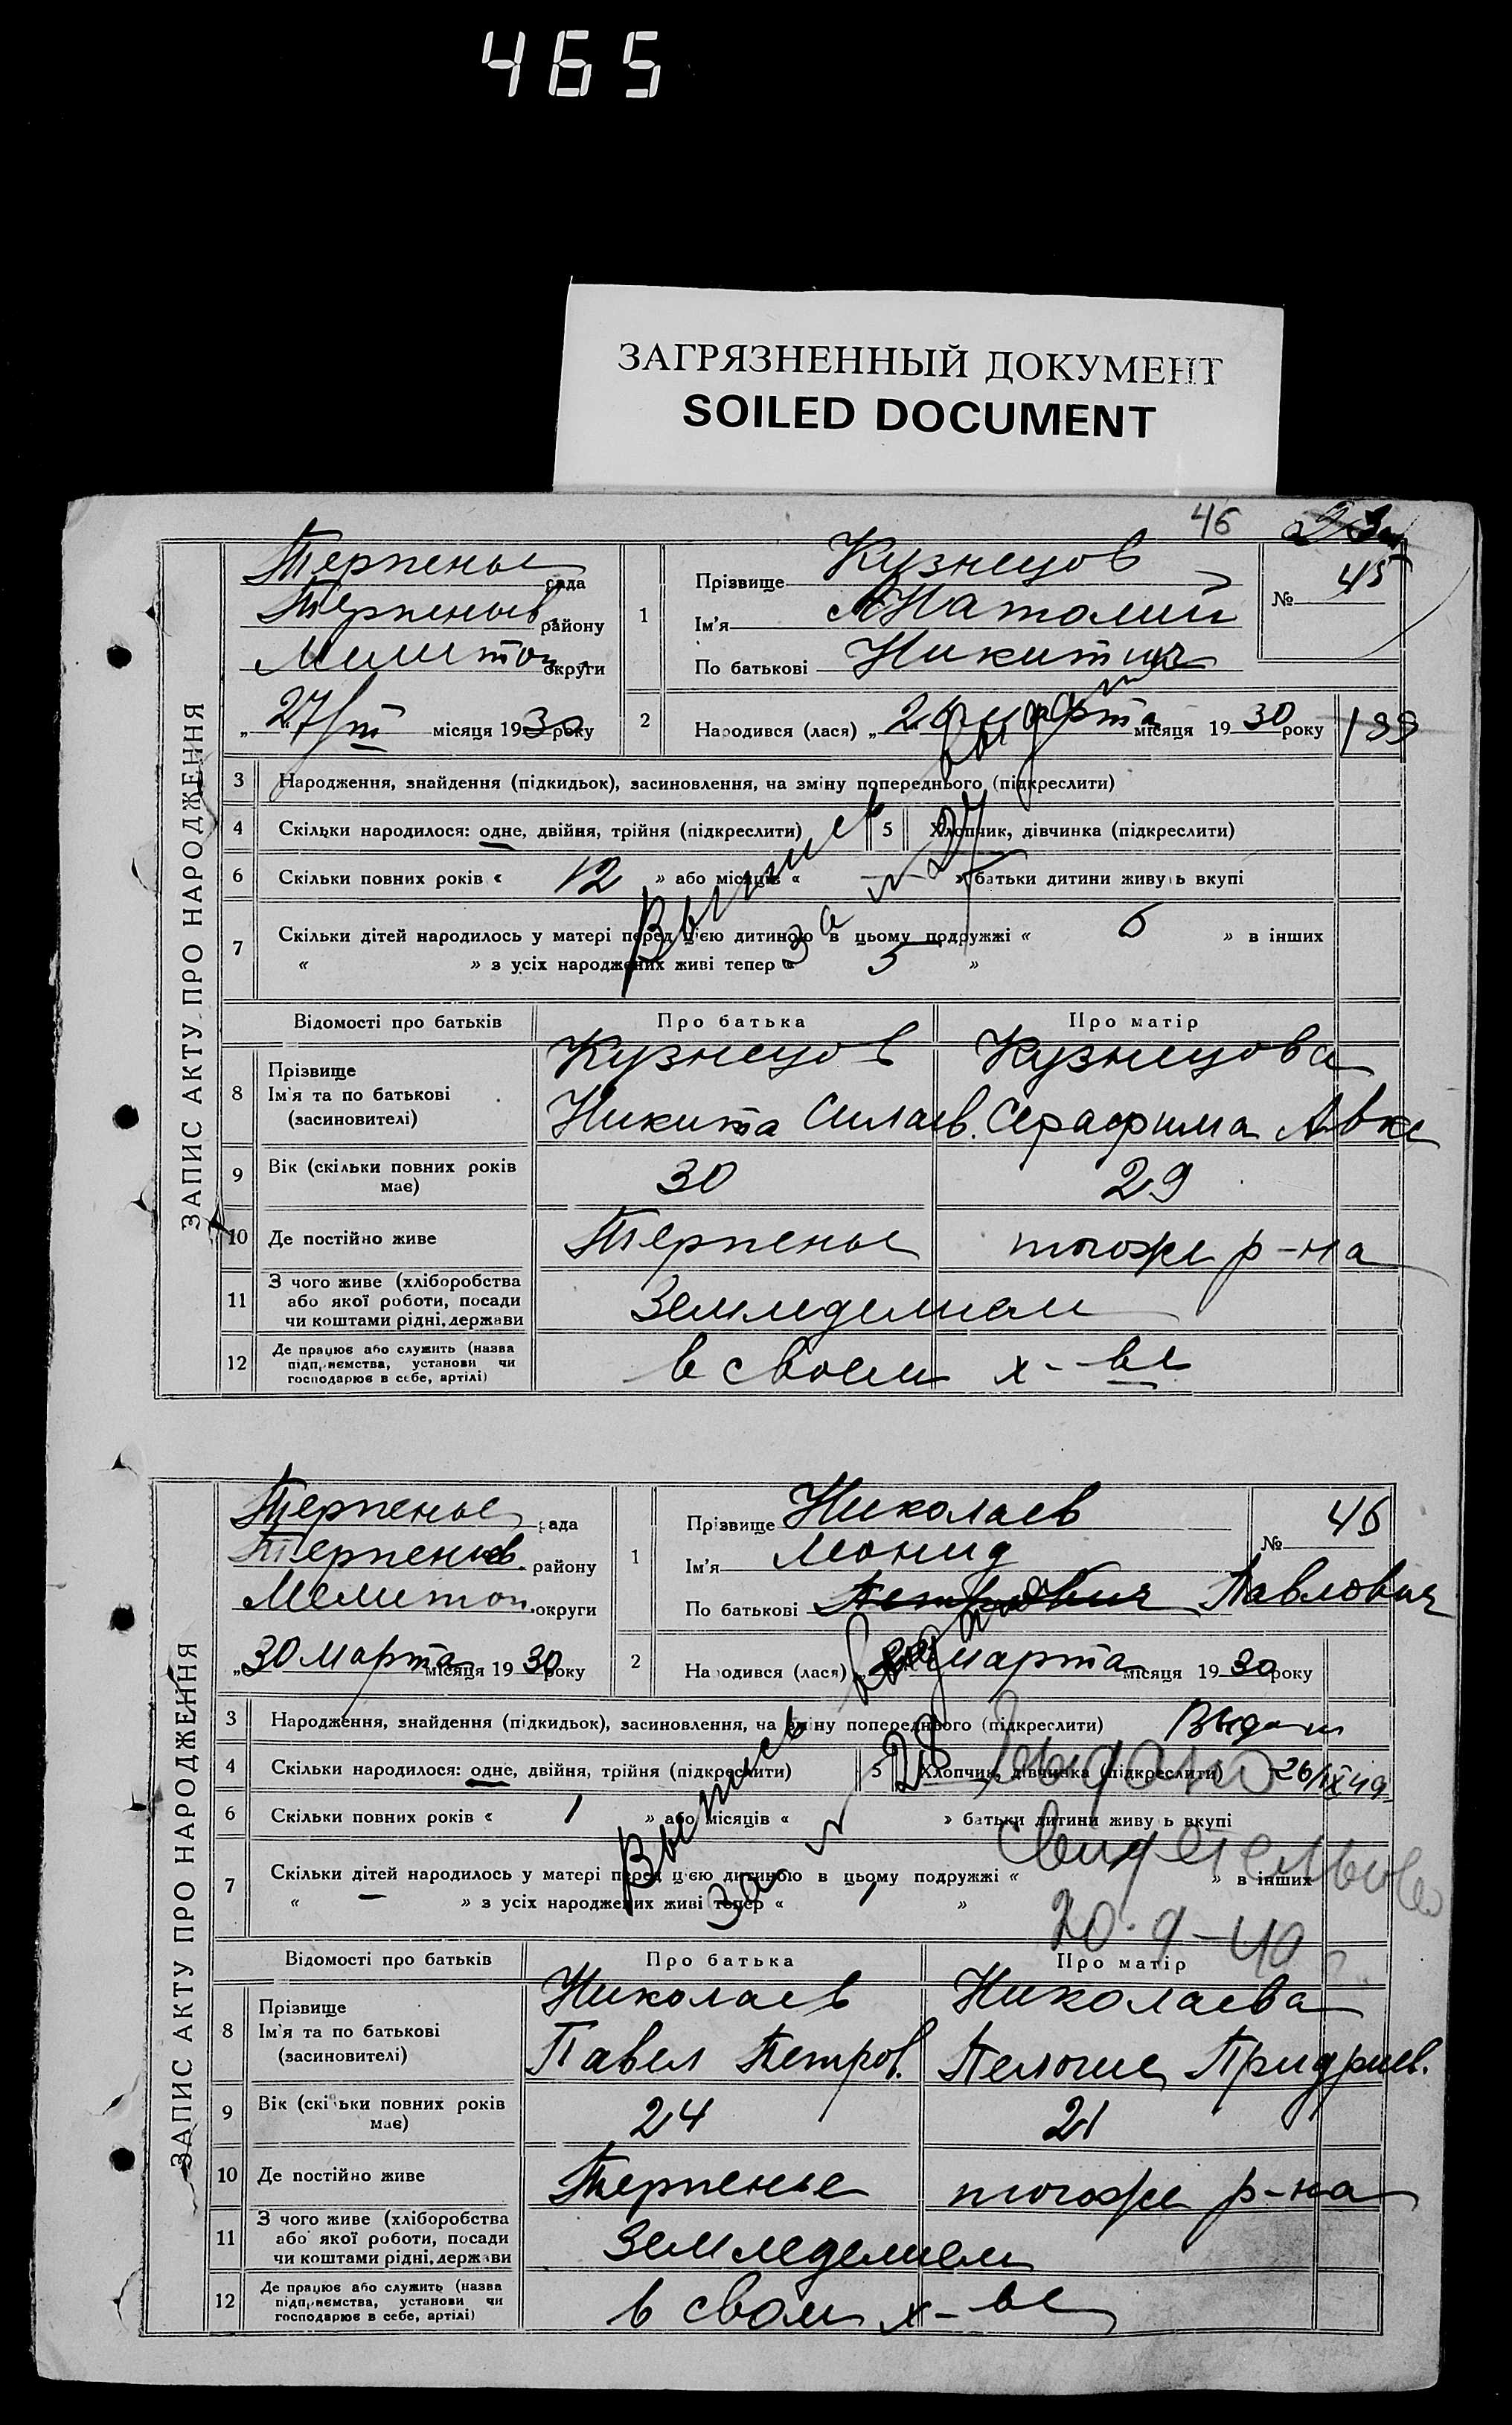 465
ЗАГРЯЗНЕННЫЙ ДОКУМЕНТ
SOILED DOCUMENT
46
ЗАПИС АКТУ ПРО НАРОДЖЕННЯ
Терпенье сада
Терпеньев. району
Мелитоп. округи
„27/III місяця 1930 року
1
Прізвище Кузнецов
Ім'я Анатолий
По батькові Никитич
№ 45
2
Народився (лася) „26 марта місяця 1930 року
199
3 Народження, знайдення (підкидьок), засиновлення, на зміну попереднього (підкреслити)
4 Скільки народилося: одне, двійня, трійня (підкреслити)
5 Хлопчик, дівчинка (підкреслити)
6 Скільки повних років « 12 » або місяців « — » батьки дитини живуть вкупі
7 Скільки дітей народилось у матері перед ц'єю дитиною в цьому подружжі « 6 » в інших
« » з усіх народжених живі тепер « 5 »
Выпись выдана
за № 27
Відомості про батьків Про батька Про матір
8 Прізвище
Ім'я та по батькові
(засиновителі)
Кузнецов
Никита Силаев.
Кузнецова
Серафима Авкс
9 Вік (скільки повних років
має)
30 29
10 Де постійно живе Терпенье тогоже р-на
11 З чого живе (хліборобства
або якої роботи, посади
чи коштами рідні, держави
Земледелием
12 Де працює або служить (назва
підприємства, установи чи
господарює в себе, артілі)
в своем х-ве
ЗАПИС АКТУ ПРО НАРОДЖЕННЯ
Терпенье сада
Терпеньев. району
Мелитоп. округи
„30 марта місяця 1930 року
1
Прізвище Николаев
Ім'я Леонид
По батькові Петрович Павлович
№ 46
2
Народився (лася) марта місяця 1930 року
3 Народження, знайдення (підкидьок), засиновлення, на зміну попереднього (підкреслити)
Выдан
4 Скільки народилося: одне, двійня, трійня (підкреслити)
5 Хлопчик, дівчинка (підкреслити)
26/IX 49
6 Скільки повних років « 1 » або місяців « » батьки дитини живуть вкупі
7 Скільки дітей народилось у матері перед ц'єю дитиною в цьому подружжі « » в інших
« — » з усіх народжених живі тепер « 1 »
Выпись выдана
за № 28
Выдано
свидетельство
20.9-40 г.
Відомості про батьків Про батька Про матір
8 Прізвище
Ім'я та по батькові
(засиновителі)
Николаев
Павел Петров.
Николаева
9 Вік (скільки повних років
має)
24 21
10 Де постійно живе Терпенье тогоже р-на
11 З чого живе (хліборобства
або якої роботи, посади
чи коштами рідні, держави
Земледелием
12 Де працює або служить (назва
підприємства, установи чи
господарює в себе, артілі)
в своем х-ве